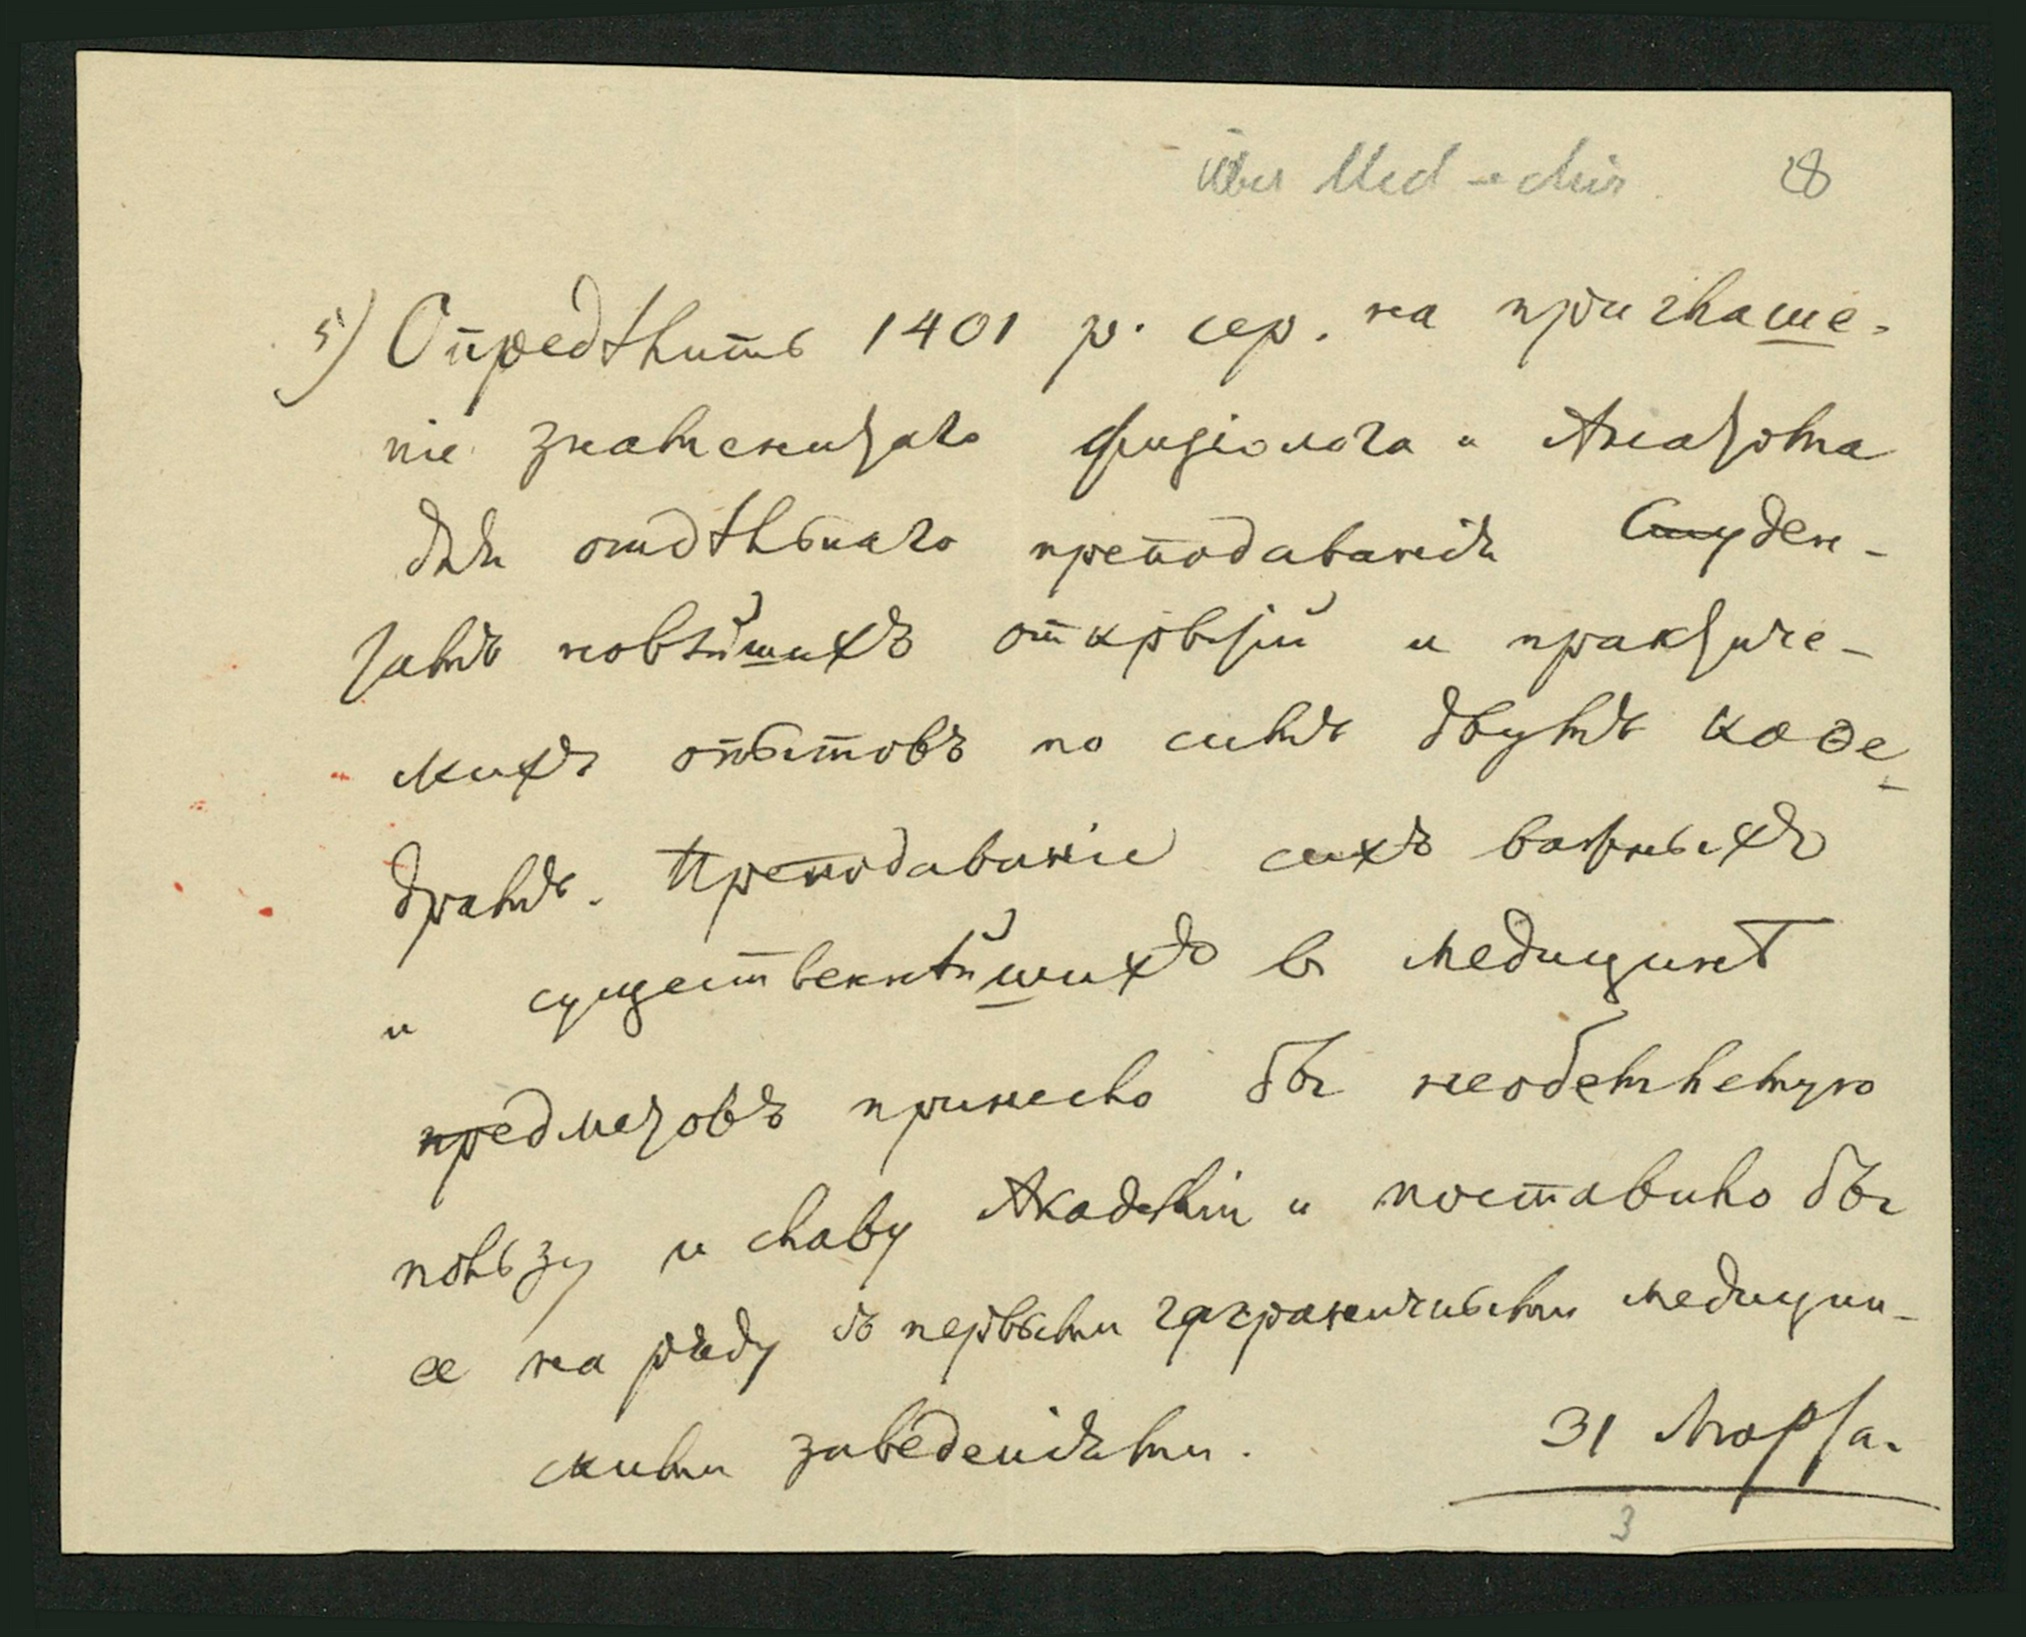 über Med - chir. 28
5) Опредѣлить 1401 р. сер. на приглаше-
ніе знаменитаго физіолога и Анатома
для отдѣльнаго преподаванія Студен-
тамъ новѣйшихъ открытій и практиче-
скихъ опытовъ по симъ двумъ каѳе-
драмъ. Преподаваніе сихъ важныхъ
и существеннѣйшихъ въ медицинѣ
предметовъ принесло бы необъемлемую
пользу и славу Академіи и поставило бы
ее на ряду съ первыми заграничными медицин-
скими заведеніями.
31 Марта.
3